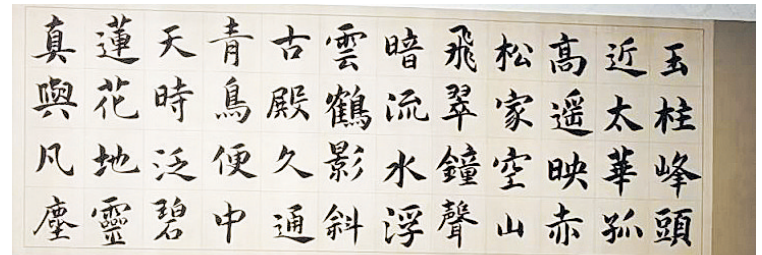 玉柱峰頭
近太華孤
高遥映赤
松家空山
飛翠鐘聲
暗流水浮
雲鶴影斜
古殿久通
青鳥便中
天時泛碧
蓮花地靈
真與凡塵